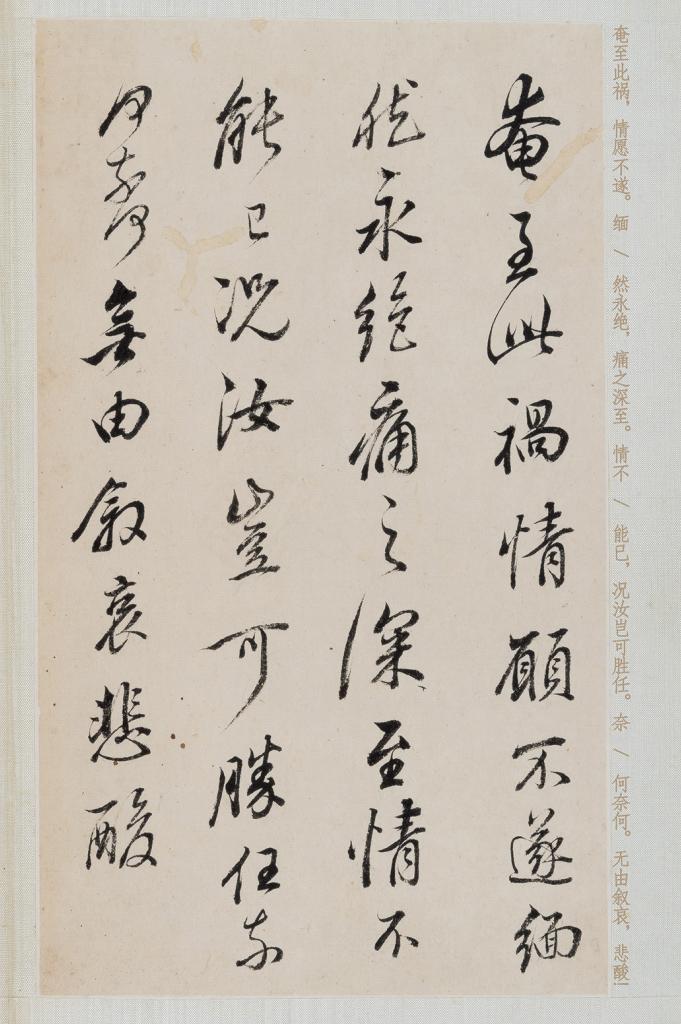 奄至此禍情願不遂緬
然永絕痛之深至情不
能已況汝豈可勝任奈
何奈何無由敘哀悲酸
奄至此祸，情愿不遂。缅 / 然永绝，痛之深至。情不 / 能已，况汝岂可胜任。奈 / 何奈何。无由叙哀，悲酸！